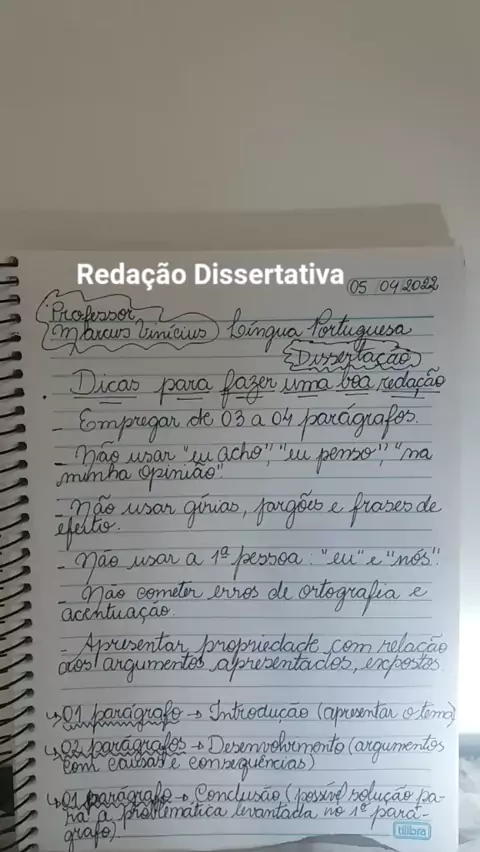 Redação Dissertativa
05 09 2022
Professor
Marcus Vinícius Língua Portuguesa
Dissertação
. Dicas para fazer uma boa redação
- Empregar de 03 a 04 parágrafos.
- Não usar "eu acho", "eu penso", "na
minha opinião".
- Não usar gírias, jargões e frases de
efeito.
- Não usar a 1ª pessoa: "eu" e "nós".
- Não cometer erros de ortografia e
acentuação.
- Apresentar propriedade com relação
aos argumentos apresentados, expostos.
↳ 01 parágrafo → Introdução (apresentar o tema)
↳ 02 parágrafos → Desenvolvimento (argumentos
com causas e consequências)
↳ 01 parágrafo → Conclusão (possível solução pa-
ra a problemática levantada no 1º pará-
grafo).
tilibra